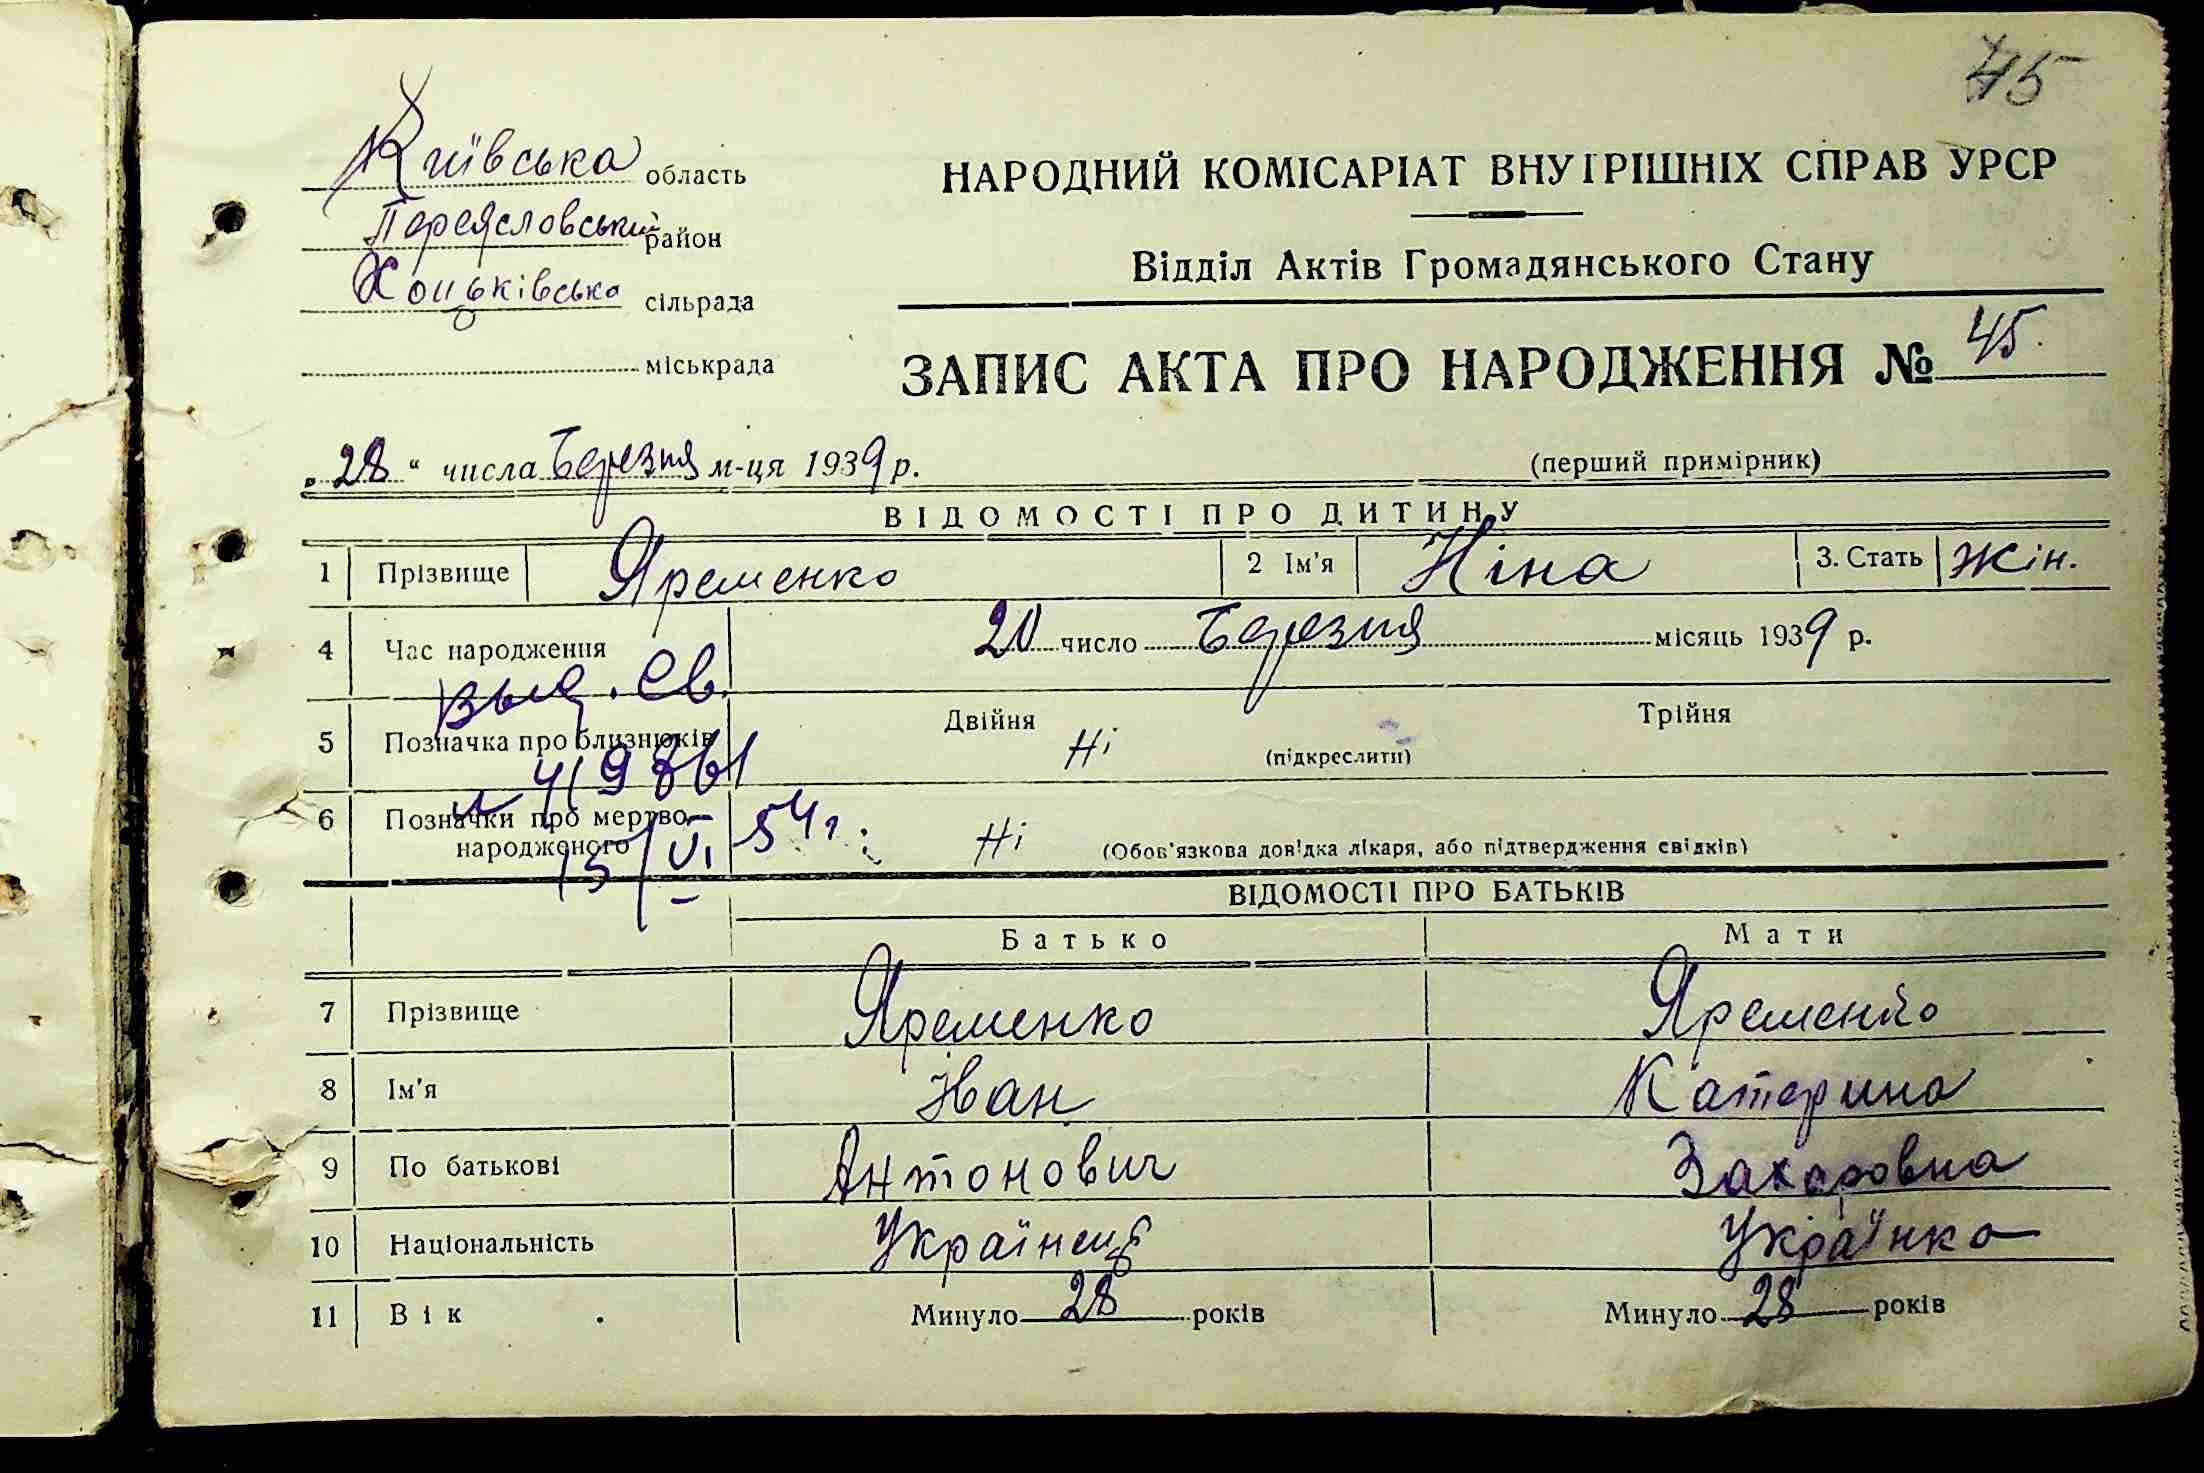 45
Київська область
Переяславський район
Хоцьківська сільрада
міськрада
НАРОДНИЙ КОМІСАРІАТ ВНУТРІШНІХ СПРАВ УРСР
Відділ Актів Громадянського Стану
ЗАПИС АКТА ПРО НАРОДЖЕННЯ № 45.
„28“ числа Березня м-ця 1939 р.
(перший примірник)
ВІДОМОСТІ ПРО ДИТИНУ
1 Прізвище Яременко 2 Ім'я Ніна 3. Стать Жін.
4 Час народження 20 число Березня місяць 1939 р.
выд. св.
5 Позначка про близнюків Двійня Ні (підкреслити) Трійня
6 Позначки про мертво-народженого Ні (Обов'язкова довідка лікаря, або підтвердження свідків)
15/VI 54г.
ВІДОМОСТІ ПРО БАТЬКІВ
Батько Мати
7 Прізвище Яременко Яременко
8 Ім'я Іван Катерина
9 По батькові Антонович Захаровна
10 Національність Українець Українка
11 Вік Минуло 28 років Минуло 28 років